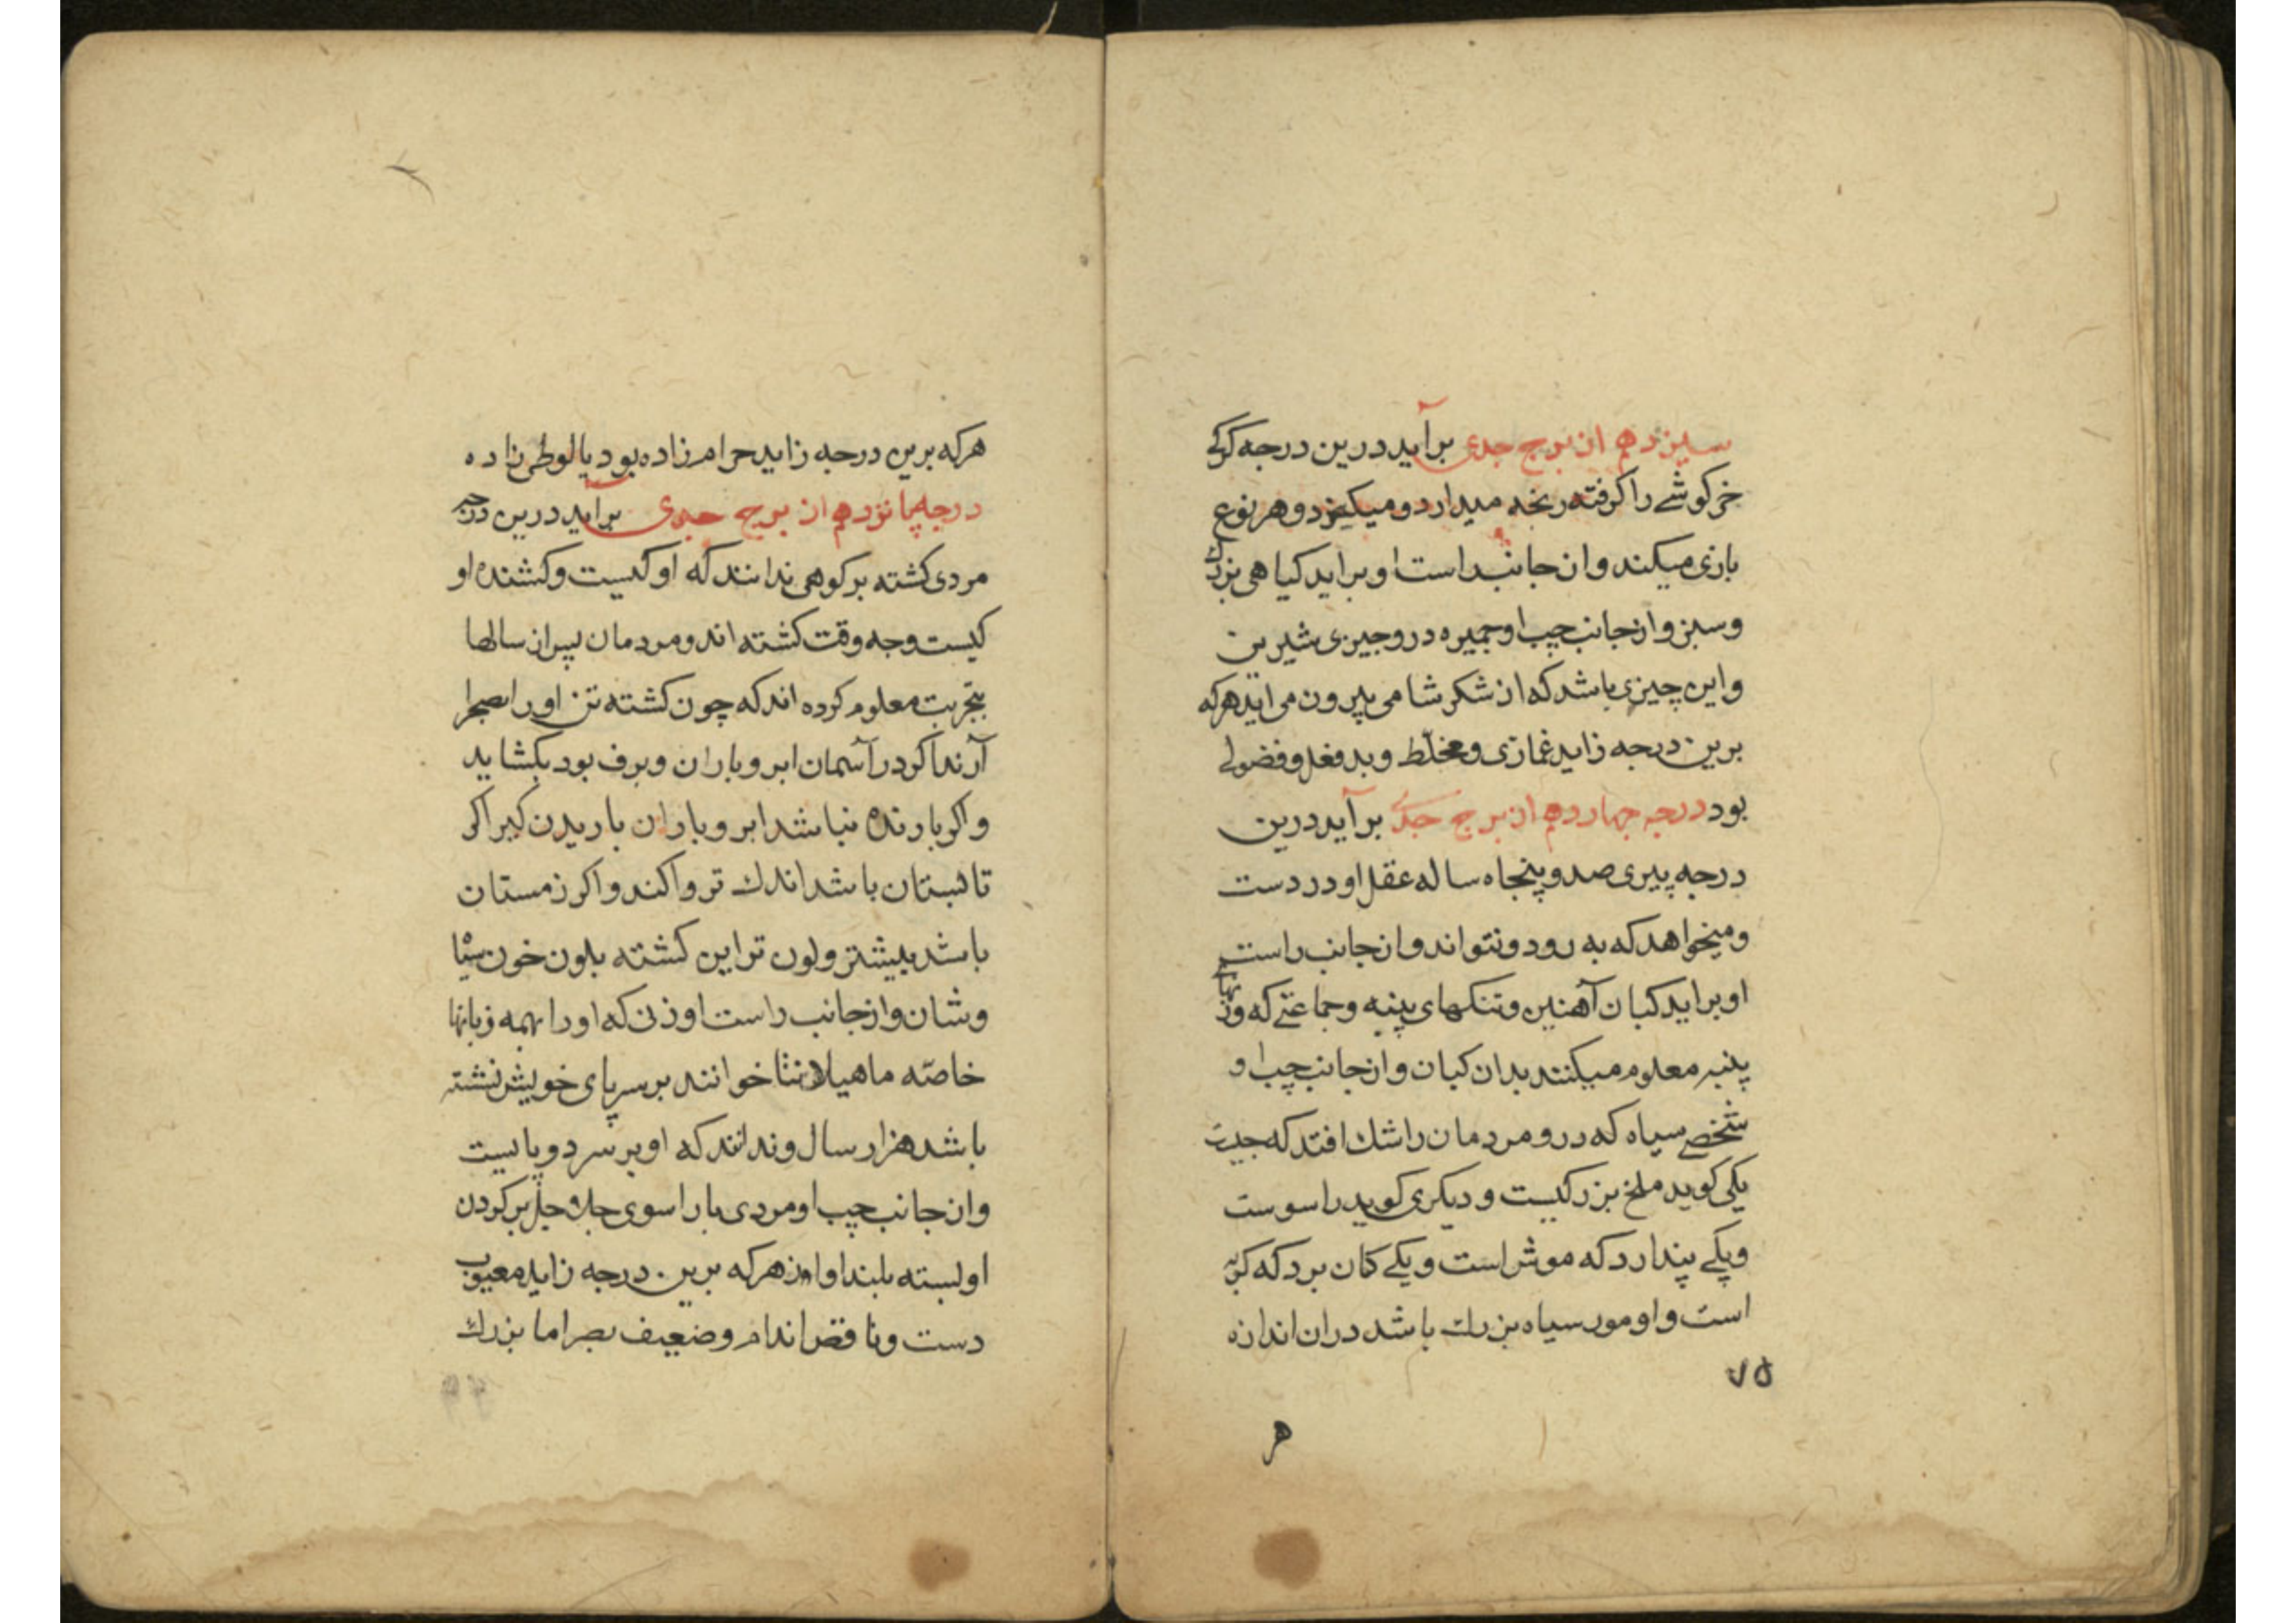 سیزدهم از برج جدی برآید درین درجه کرکی
خرکوشے را کرفته رنجه میدارد و میکیزد و هر نوع
بازی میکند و از جانب راست او براید کیاهی بزرك
و سبز و از جانب چپ او جمیره درو چیزی شیرین
و این چیزی باشد که از شکر شامی بیرون می اید هرکه
برین درجه زاید غمازی و مخلّط و بدفعل و فضولے
بود درجه چهاردهم از برج جدی برآید درین
درجه پیری صد و پنجاه ساله عقل او در دست
و میخواهد که به رود و نتواند و از جانب راست
او براید کبان آهنین و تنکهای پنبه و جماعتے که وزنهای
پنبه معلوم میکنند بدان کبان و از جانب چپ او
شخصے سیاه که درو مردمان را شك افتد که چیست
یکی کوید ملخ بزرکیست و دیکری کوید راسوست
و یکے پندارد که موش است و یکے کمان برد که کربه
است و او مور سیاه بزرك باشد دران اندازه
۷۵
هر
هرکه برین درجه زاید حرامزاده بود یا لوطی زاده
درجه پانزدهم از برج جدی برآید درین درجه
مردی کشته بر کوهی ندانند که او کیست و کشنده او
کیست و چه وقت کشته اند و مردمان پس از سالها
بتجربت معلوم کرده اند که چون کشته تن او را بصحرا
آرند اکر در آسمان ابر و باران و برف بود بکشاید
و اکر بارنده نباشد ابر و باران باریدن کیر اکر
تابستان باشد اندك تر و اکند و اکر زمستان
باشد بیشتر و لون تر این کشته بلون خون سیا
وشان و از جانب راست او زنی که او را بهمه زبانها
خاصّه ماهیلانثا خوانند بر سر پای خویش نشته
باشد هزار سال و ندانند که او بر سر دو پایست
و از جانب چپ او مردی با راسوی جل و جل بر کردن
او بسته بلند اواز هرکه برین درجه زاید معیوب
دست و ناقص اندام و ضعیف بصر اما بزرك